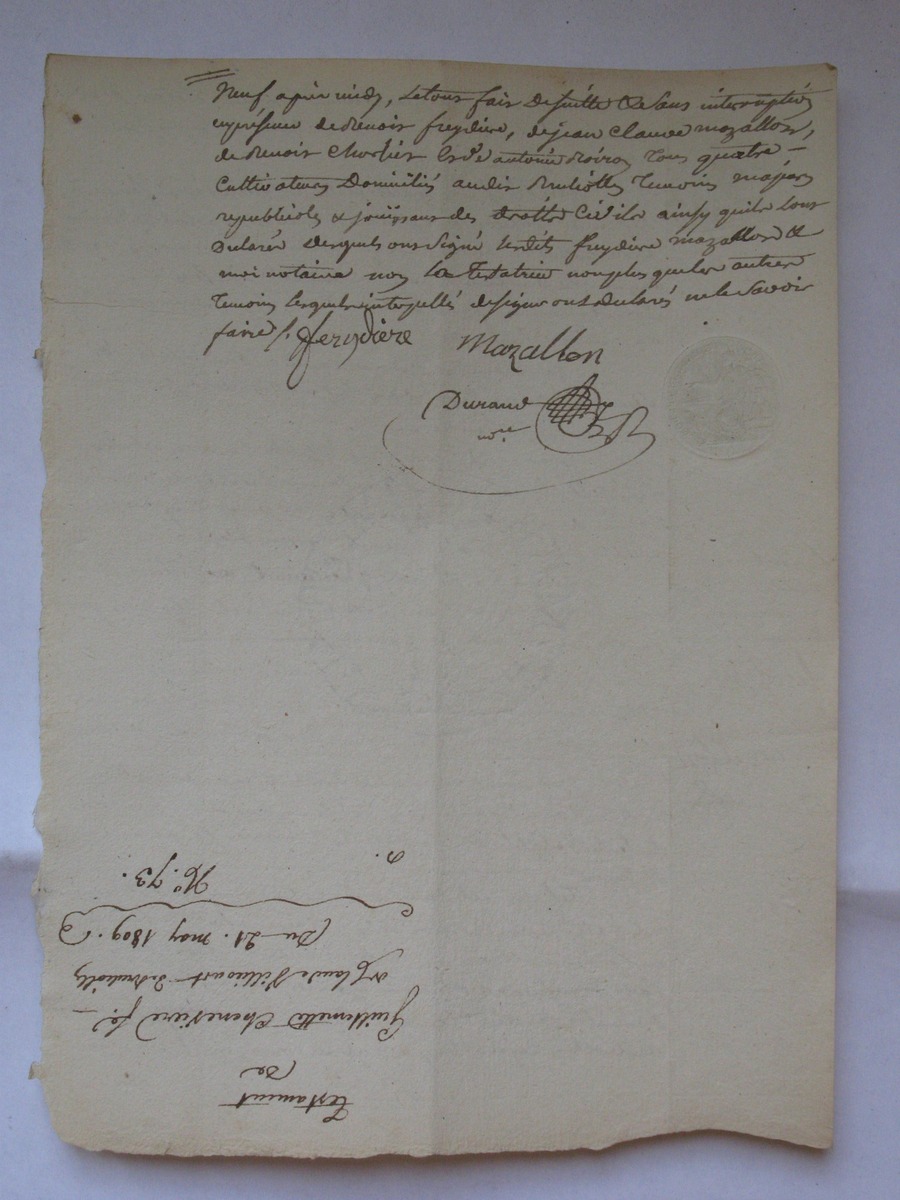 neuf après midy, le tout fait de suitte & sans interruption
en présence de Benoit freydière, de jean Claude mazallon,
de Benoit Chorlier et d'antoine tous quatre
Cultivateurs Domiciliés audit temoins majeurs
republicoles & jouissans des droitts Civils ainsy quils l'ont
Declaré desquels ont signé lesdits freydiere mazallon &
moi notaire non la Testatrice non plus que les autres
Temoins lesquels interpellés de signer ont declarés ne le savoir
faire /.
ferydiere Mazallon
Durand
nore
Testament
de
Guillemette Cheneviere fe.
de Claude
Du 21. may 1809.
No. 73.